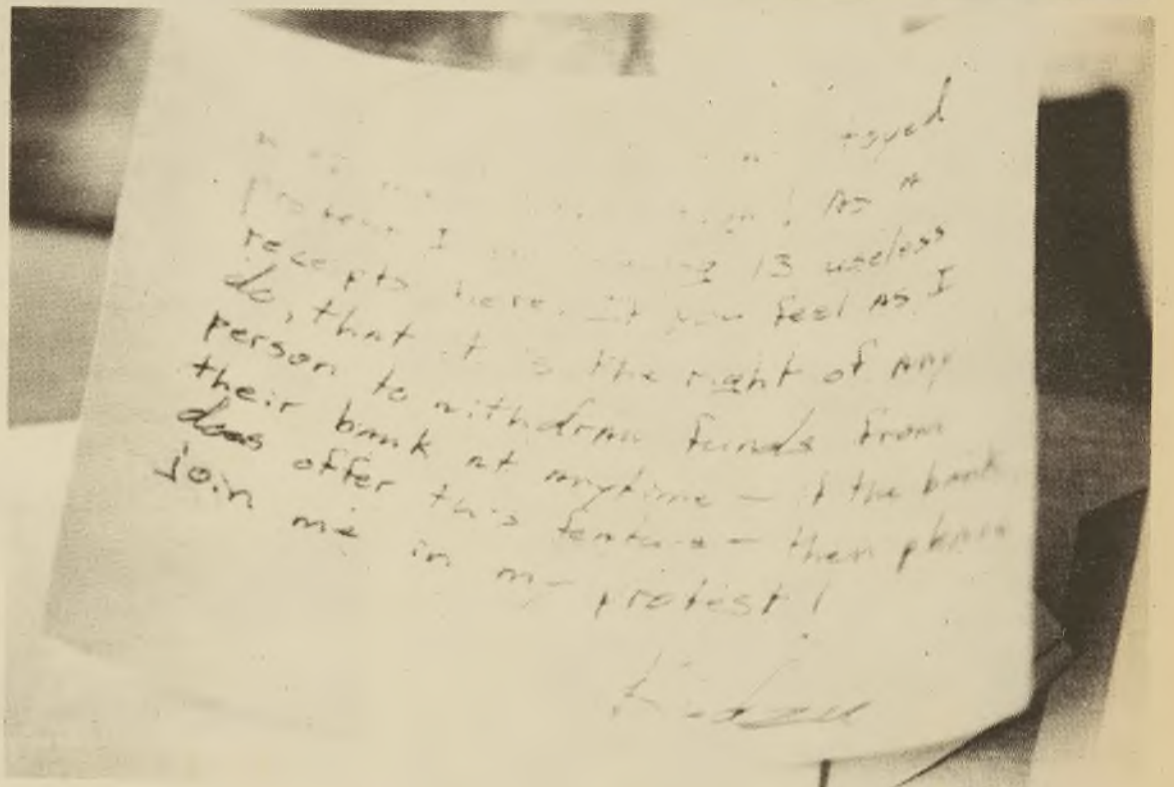 As a
protest I 13 useless
receipts here. If you feel as I
do, that it is the right of any
person to withdraw funds from
their bank at anytime — if the bank
does offer this feature — then please
join me in my protest!